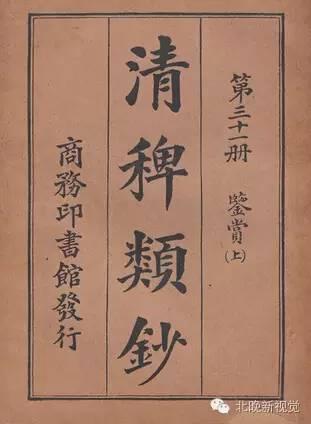 第三十一册 鑒賞(上)
清稗類鈔
商務印書館發行
北晚新视觉